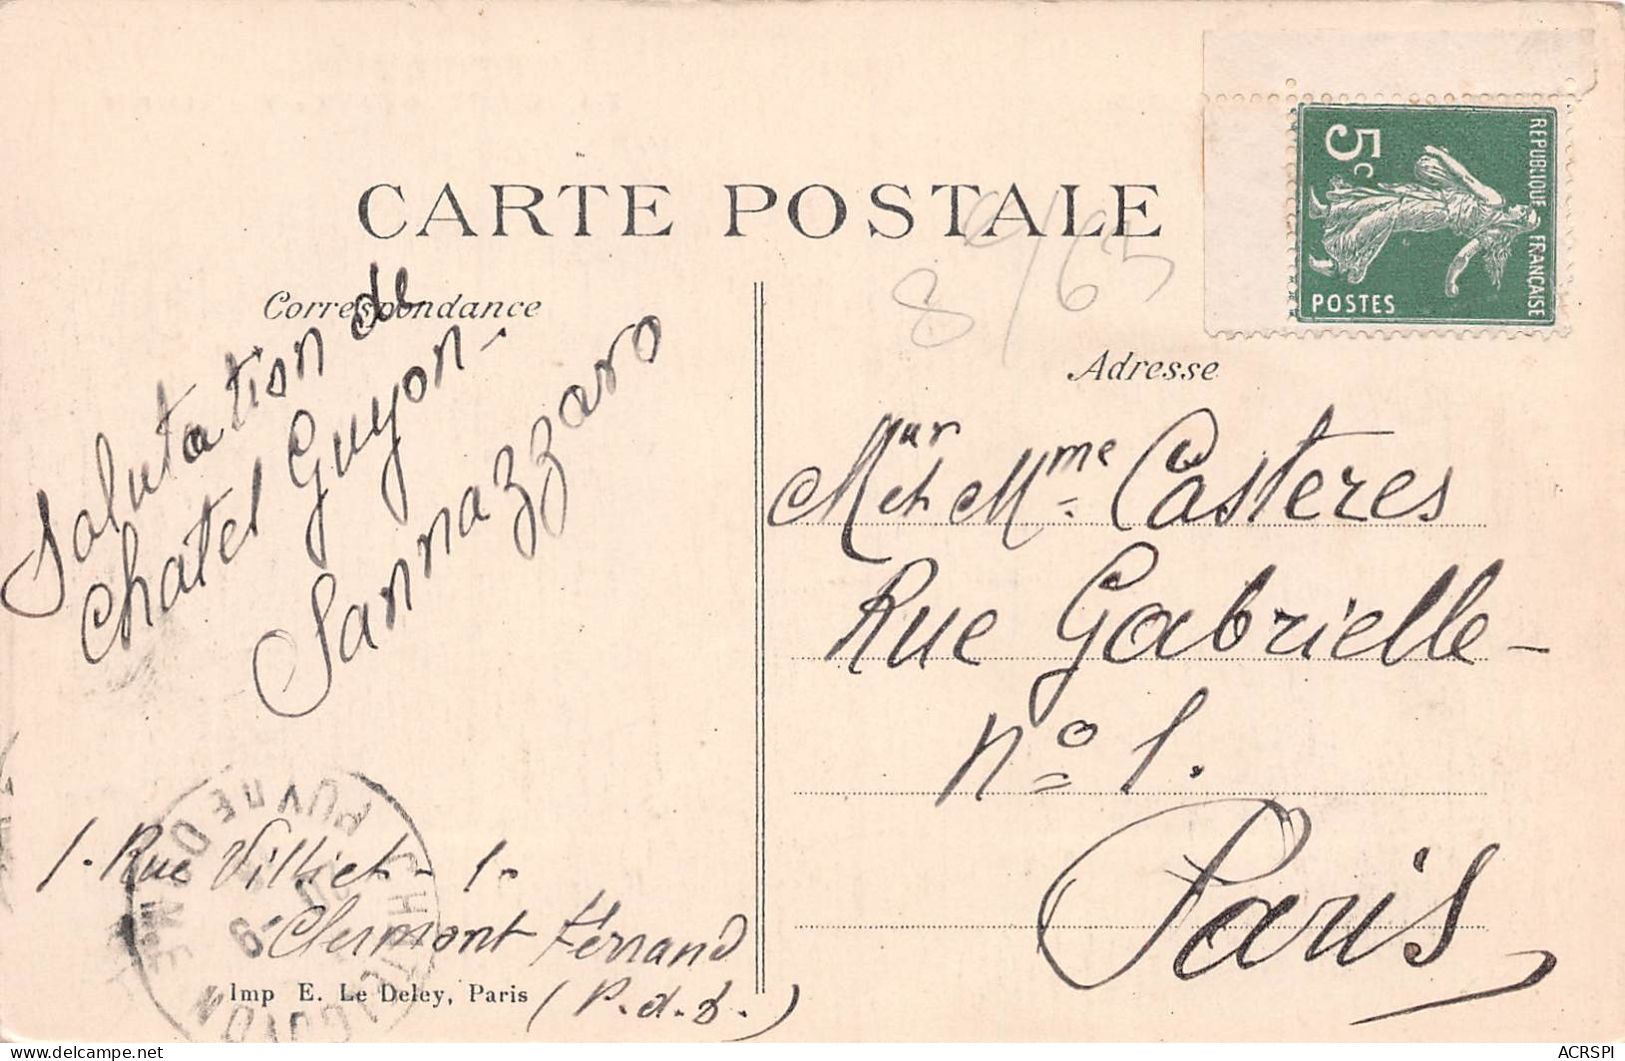 CARTE POSTALE
Correspondance
Salutation de
Chatel Guyon -
Sannazzaro
1. Rue Villiet - 1.
Clermont Ferrand
(P. d. D.)
Imp E. Le Deley, Paris
8/65
5c
REPUBLIQUE FRANÇAISE
POSTES
Adresse
Mur et Mme Casteres
Rue Gabrielle -
no 1.
Paris
PUY-DE-DOME
CHATELGUYON
ACRSPI